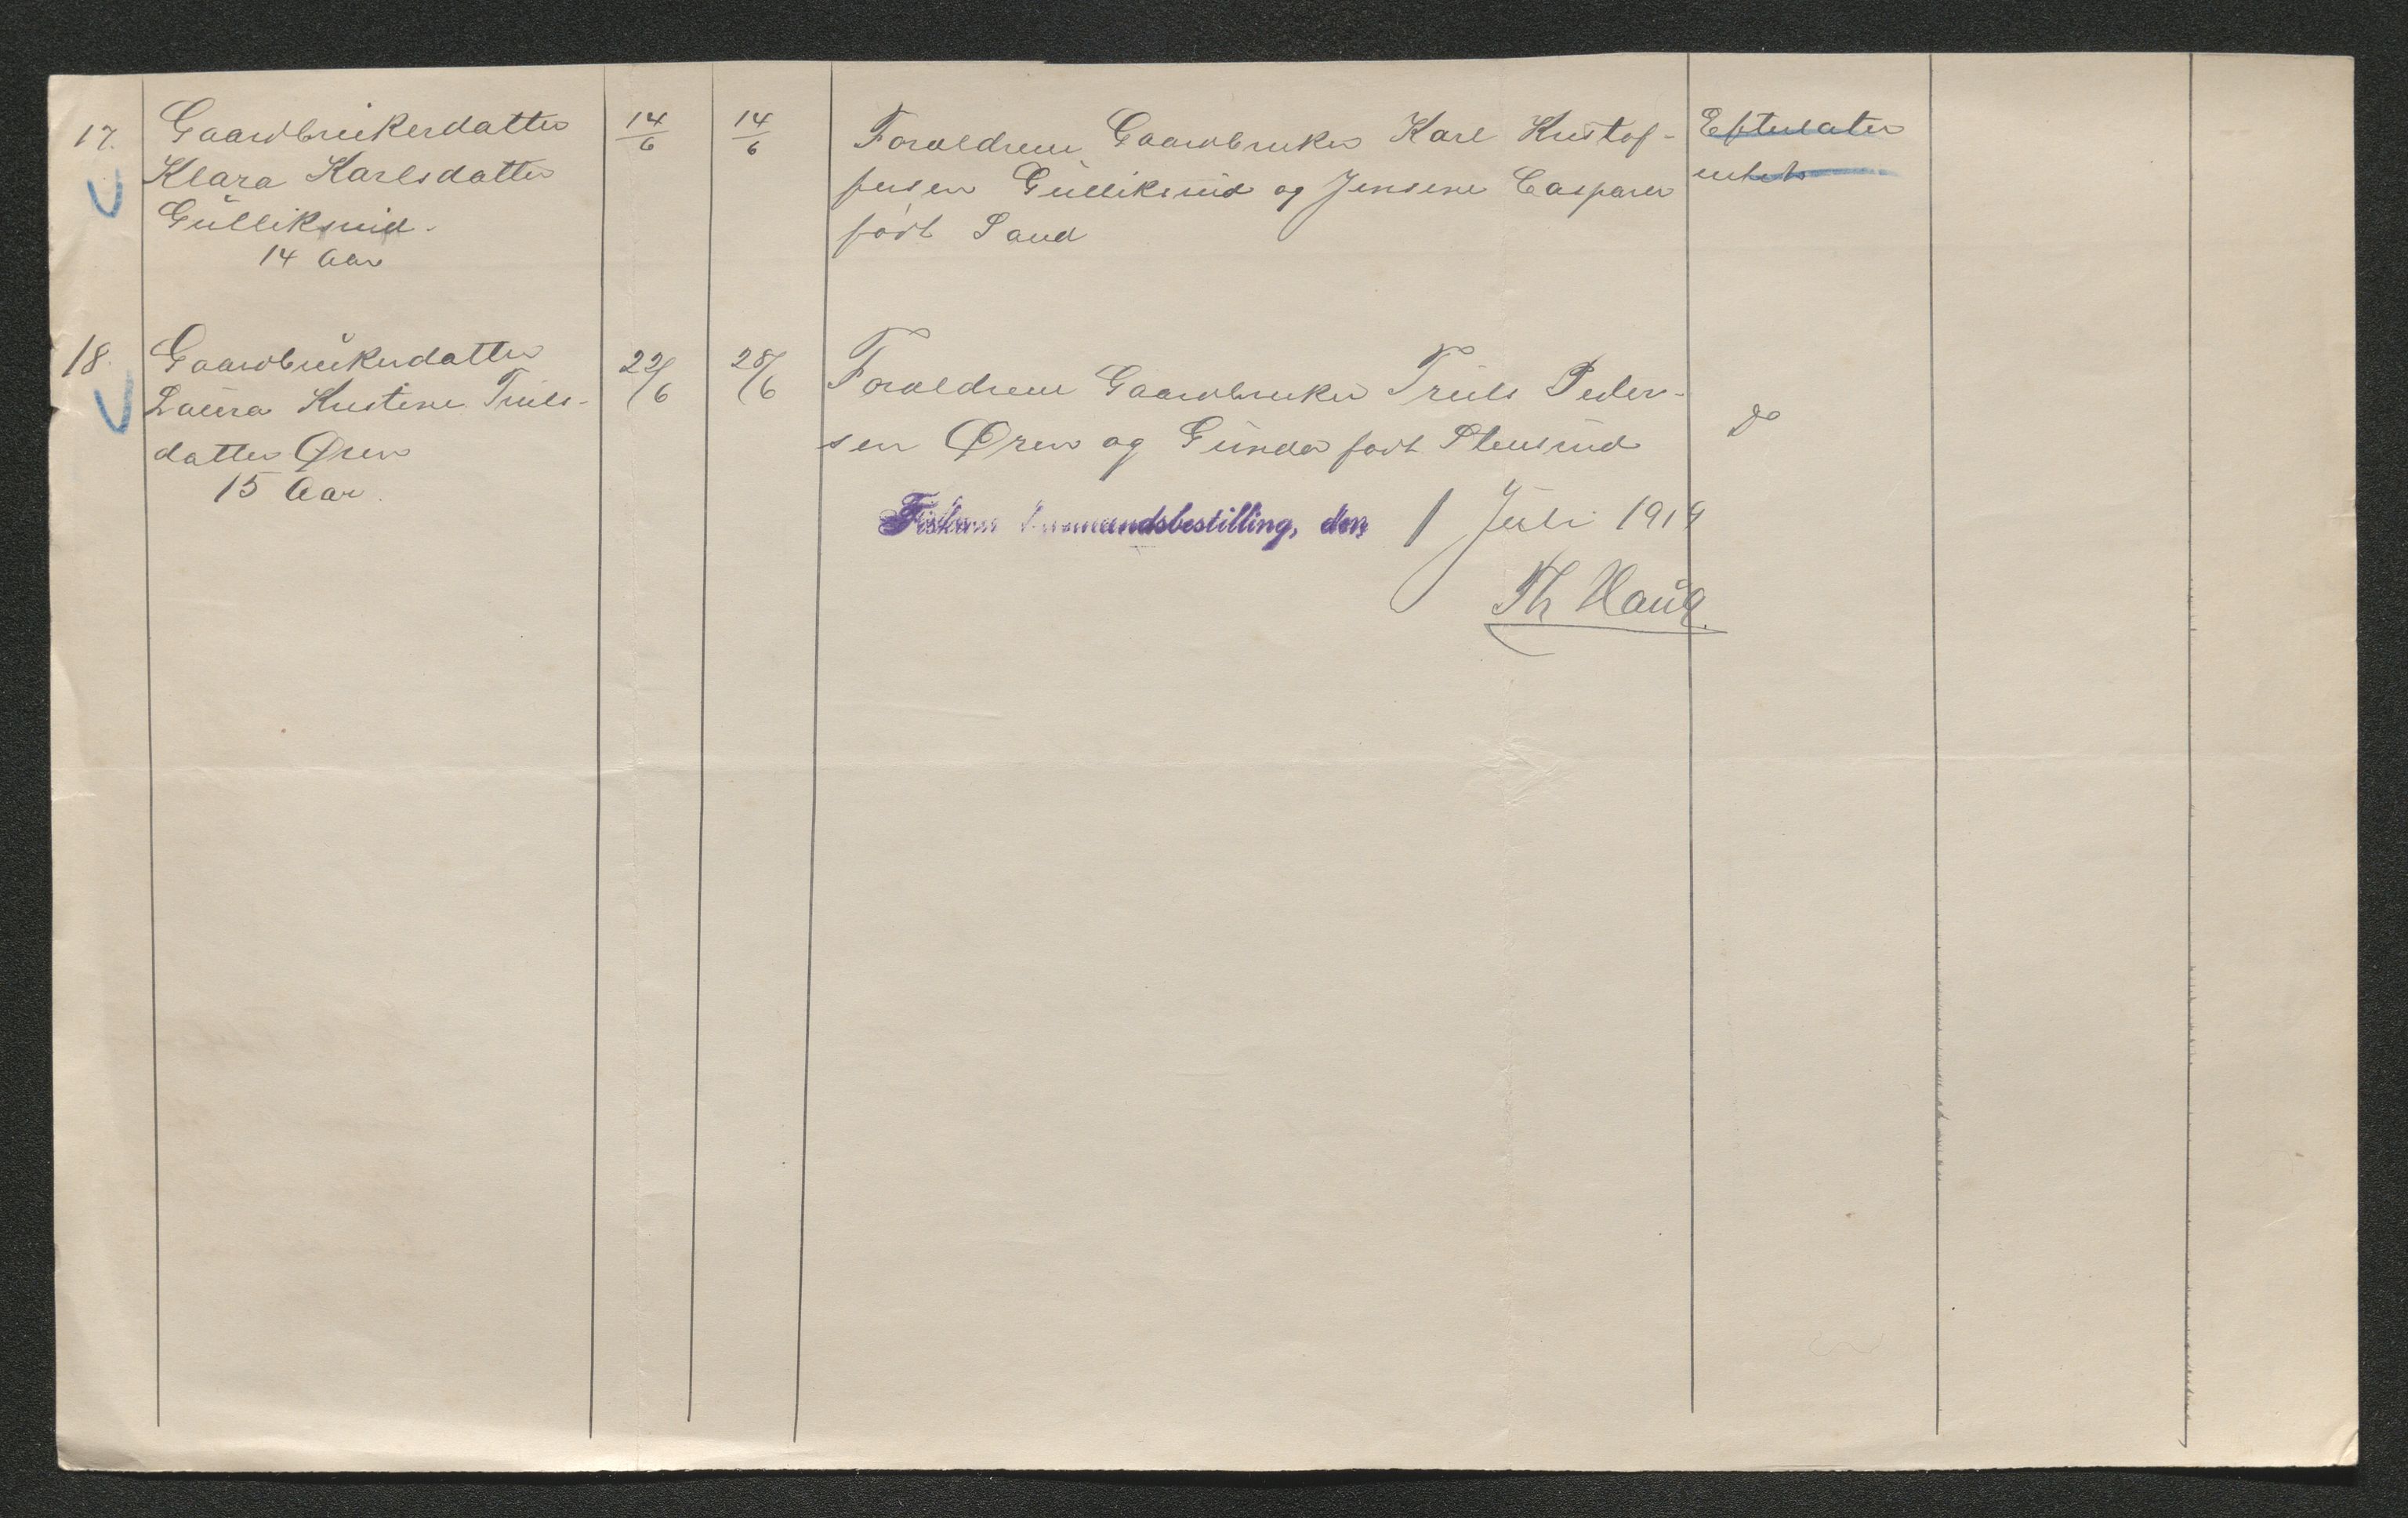 17.
Gaardbrukerdatter
Klara Karlsdatter
Gulliksrud.
14 Aar
14/6
14/6
Foraldrene Gaardbruker Karl Kristof-
fersen Gulliksrud og Jensine Casparа
født Sand
Efterlater
intet
18.
Gaardbrukerdatter
Laura Kristine Truls-
datter Øren
15 Aar.
22/6
28/6
Foraldrene Gaardbruker Truls Peder-
sen Øren og Gunda født Stensrud
do
Fiskum Lensmandsbestilling, den 1 Juli 1914
Th Haug.